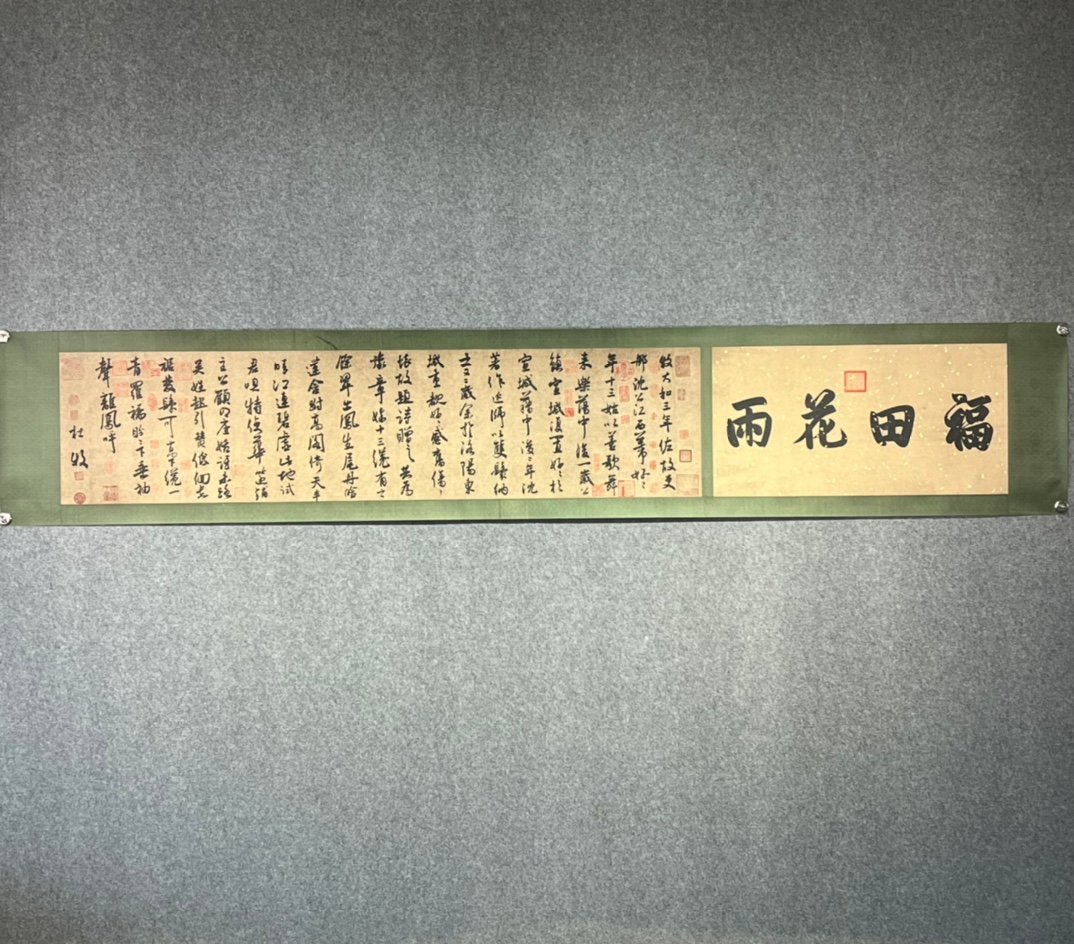 福田花雨
牧大和三年佐故吏
部沈公江西幕好々
年十三始以善歌舞
来樂籍中後一歲公
鎮宣城復置好於
宣城籍中後二年沈
著作述師以雙鬟納
之又二歲余於洛陽東
城重覩好々感舊傷
懷故題詩贈之君為
豫章姝十三纔有
翠茁鳳生尾丹臉
蓮含跗高閣倚天半
晴江連碧虛此地試
君唱特使華筵鋪
主公顧四座始訝来踟
吳娃起引贊低佪
裾雙鬟可高下纔
青羅襦盼々下垂袖
聲雛鳳呼
杜牧